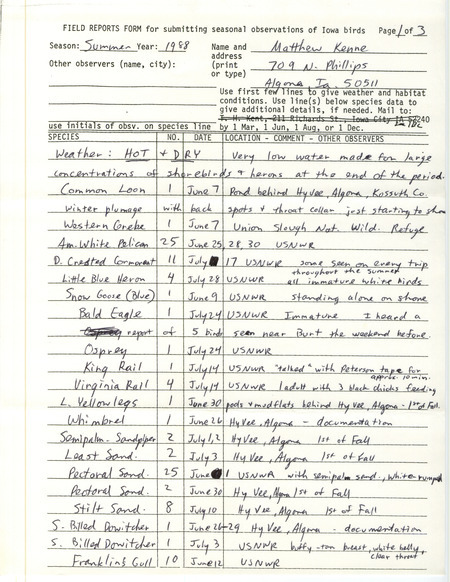 FIELD REPORTS FORM for submitting seasonal observations of Iowa birds Page 1 of 3
Season: Summer Year: 1988 Name and address (print or type) Matthew Kenne
Other observers (name, city): 709 N. Phillips
Algona Ia 50511
Use first few lines to give weather and habitat
conditions. Use line(s) below species data to
give additional details, if needed. Mail to:
T. H. Kent, 211 Richards St., Iowa City IA 52240
use initials of obsv. on species line by 1 Mar, 1 Jun, 1 Aug, or 1 Dec.
SPECIES NO. DATE LOCATION - COMMENT - OTHER OBSERVERS
Weather: HOT + DRY Very low water made for large
concentrations of shorebirds & herons at the end of the period.
Common Loon 1 June 7 Pond behind HyVee, Algona, Kossuth Co.
winter plumage with back spots & throat collar just starting to show
Western Grebe 1 June 7 Union Slough Nat. Wild. Refuge
Am. White Pelican 25 June 25, 28, 30 USNWR
D. Crested Cormorant 11 July 17 USNWR some seen on every trip
throughout the summer
Little Blue Heron 4 July 28 USNWR all immature white birds
Snow Goose (Blue) 1 June 9 USNWR standing alone on shore
Bald Eagle 1 July 24 USNWR Immature I heard a
report of 5 birds seen near Burt the weekend before.
Osprey 1 July 24 USNWR
King Rail 1 July 14 USNWR "talked" with Peterson tape for
approx. 10 min.
Virginia Rail 4 July 14 USNWR 1 adult with 3 black chicks feeding
L. Yellowlegs 1 June 30 pods & mudflats behind HyVee, Algona - 1st of Fall
Whimbrel 1 June 26 HyVee, Algona - documentation
Semipalm. Sandpiper 2 July 1,2 HyVee, Algona 1st of Fall
Least Sand. 2 July 3 HyVee, Algona 1st of Fall
Pectoral Sand. 25 June 1 USNWR with semipalm sand., white rumped
Pectoral Sand. 2 June 30 Hy Vee, Algona 1st of Fall
Stilt Sand. 8 July 10 Hy Vee, Algona 1st of Fall
S. Billed Dowitcher 1 June 26-29 Hy Vee, Algona - documentation
S. Billed Dowitcher 1 July 3 USNWR buffy-tan breast, white belly,
clear throat
Franklin's Gull 10 June 12 USNWR